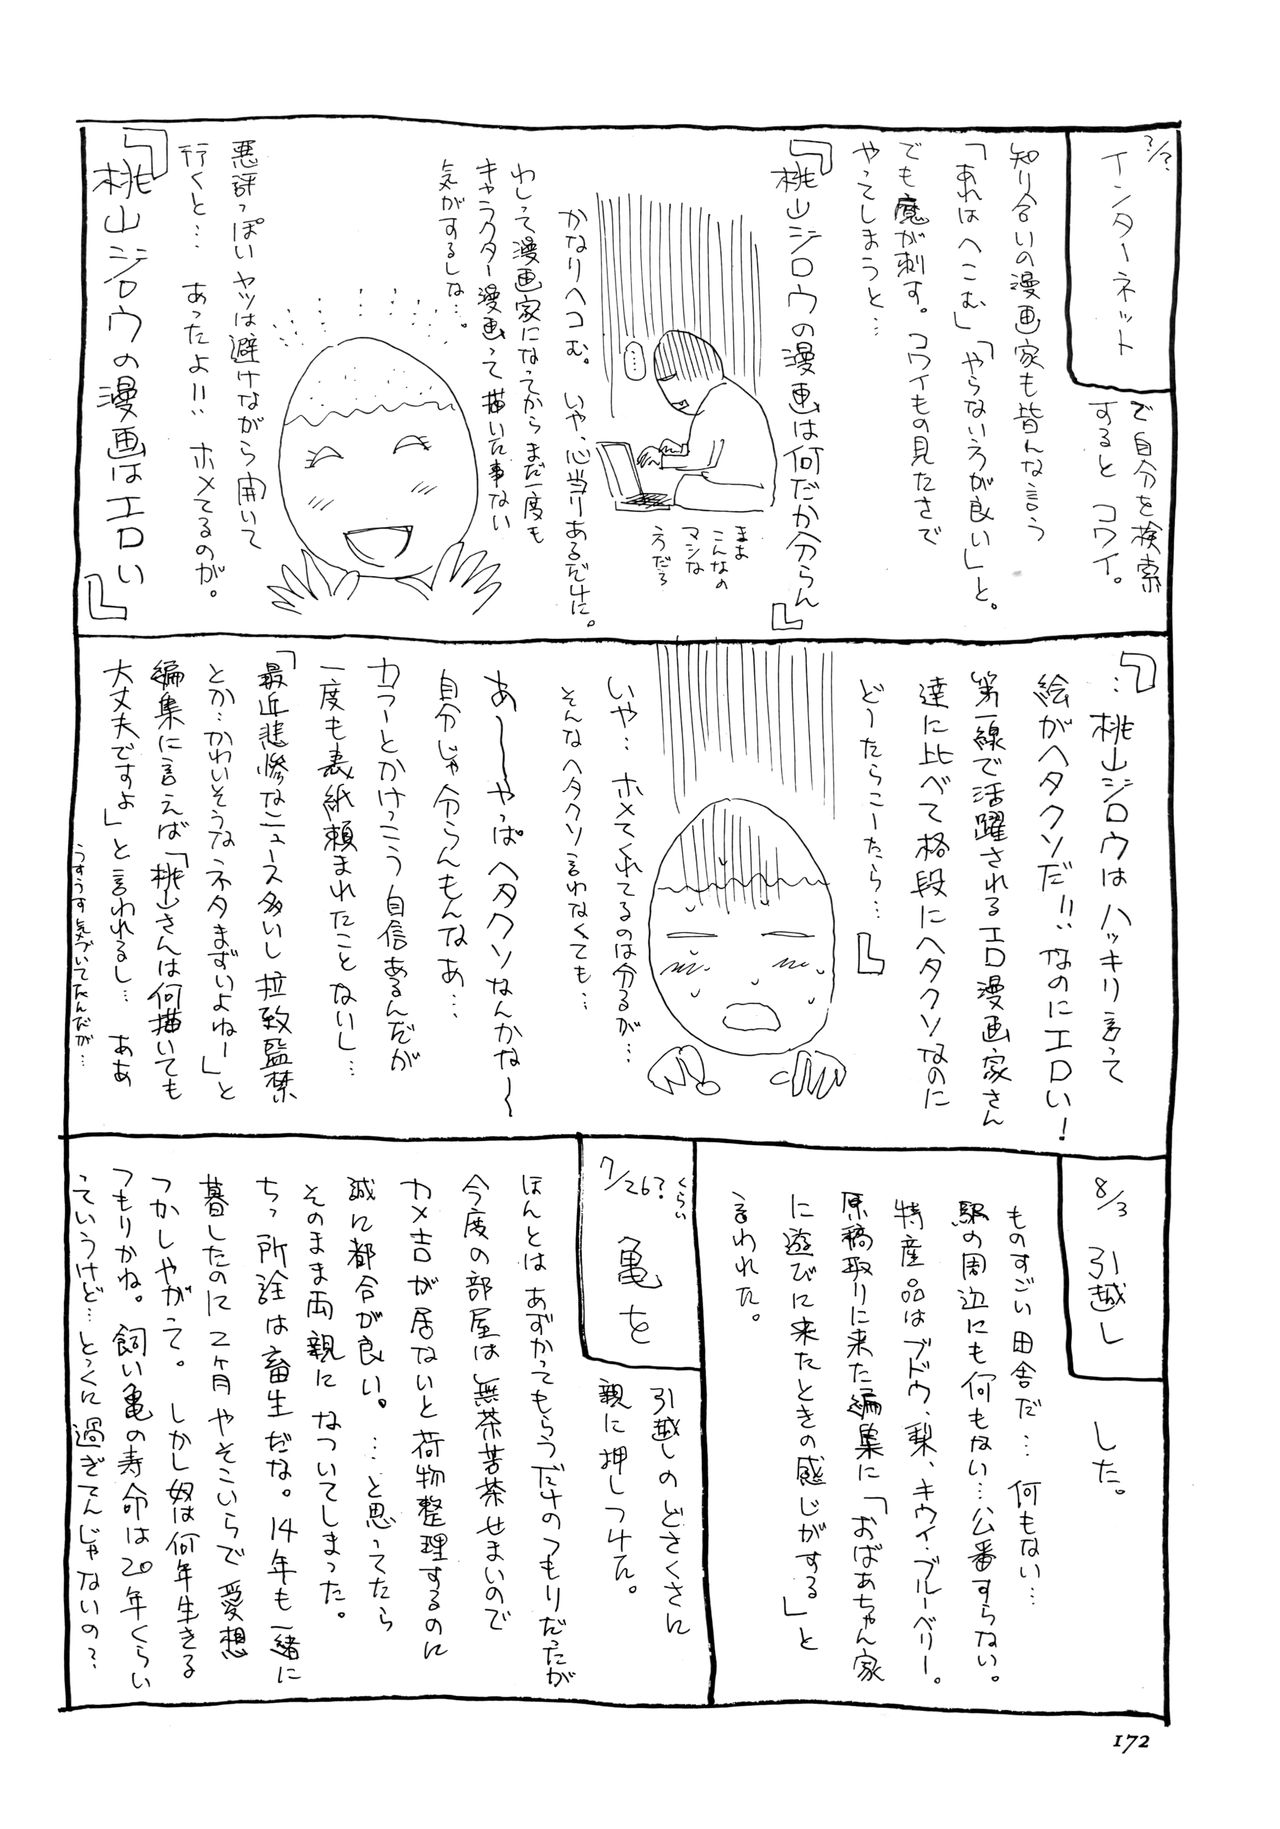 ?/?
インターネット
で自分を検索
すると コワイ。
知り合いの漫画家も皆んな言う
「あれはへこむ」「やらないろが良い」と。
でも魔が刺す。コワイもの見たさで
やってしまうと…
『桃山ジロウの漫画は何だか分らん』
…
まお
こんなの
マシな
ろだろ
かなりヘコむ。 いや、心当りあるだけに。
わしって漫画家になってからまだ一度も
キャラクター漫画って描いた事ない
気がするしな…。
悪評っぽいヤツは避けながら開いて
行くと… あったよ!! ホメてるのが。
『桃山ジロウの漫画はエロい』
『…桃山ジロウはハッキリ言って
絵がヘタクソだ!! なのにエロい!
第一線で活躍されるエロ漫画家さん
達に比べて格段にヘタクソなのに
どーたらこーたら…』
いや… ホメてくれてるのは分るが…
そんなヘタクソ言わなくても…
あ〜〜やっぱヘタクソなんかな〜
自分じゃ分らんもんなぁ…
カラーとかけっこう自信あるんだが
一度も表紙頼まれたことないし…
「最近悲惨なニュース多いし拉致監禁
とか…かわいそうなネタまずいよねー」と
編集に言えば「桃山さんは何描いても
大丈夫ですよ」と言われるし… ああ
うすうす気づいてたんだが…
8/3 引越し
した。
ものすごい田舎だ… 何もない…
駅の周辺にも何もない…公番すらない。
特産品はブドウ・梨、キウイ・ブルーベリー。
原稿取りに来た編集に「おばあちゃん家
に遊びに来たときの感じがする」と
言われた。
7/26?くらい
亀を
引越しのどさくさに
親に押しつけた。
ほんとはあずかってもらうだけのつもりだったが
今度の部屋は無茶苦茶せまいので
カメ吉が居ないと荷物整理するのに
誠に都合が良い。…と思ってたら
そのまま両親になついてしまった。
ちっ所詮は畜生だな。14年も一緒に
暮したのに2ヶ月やそこいらで愛想
つかしやがって。 しかし奴は何年生きる
つもりかね。飼い亀の寿命は20年くらい
ていうけど…とっくに過ぎてんじゃないの?
172